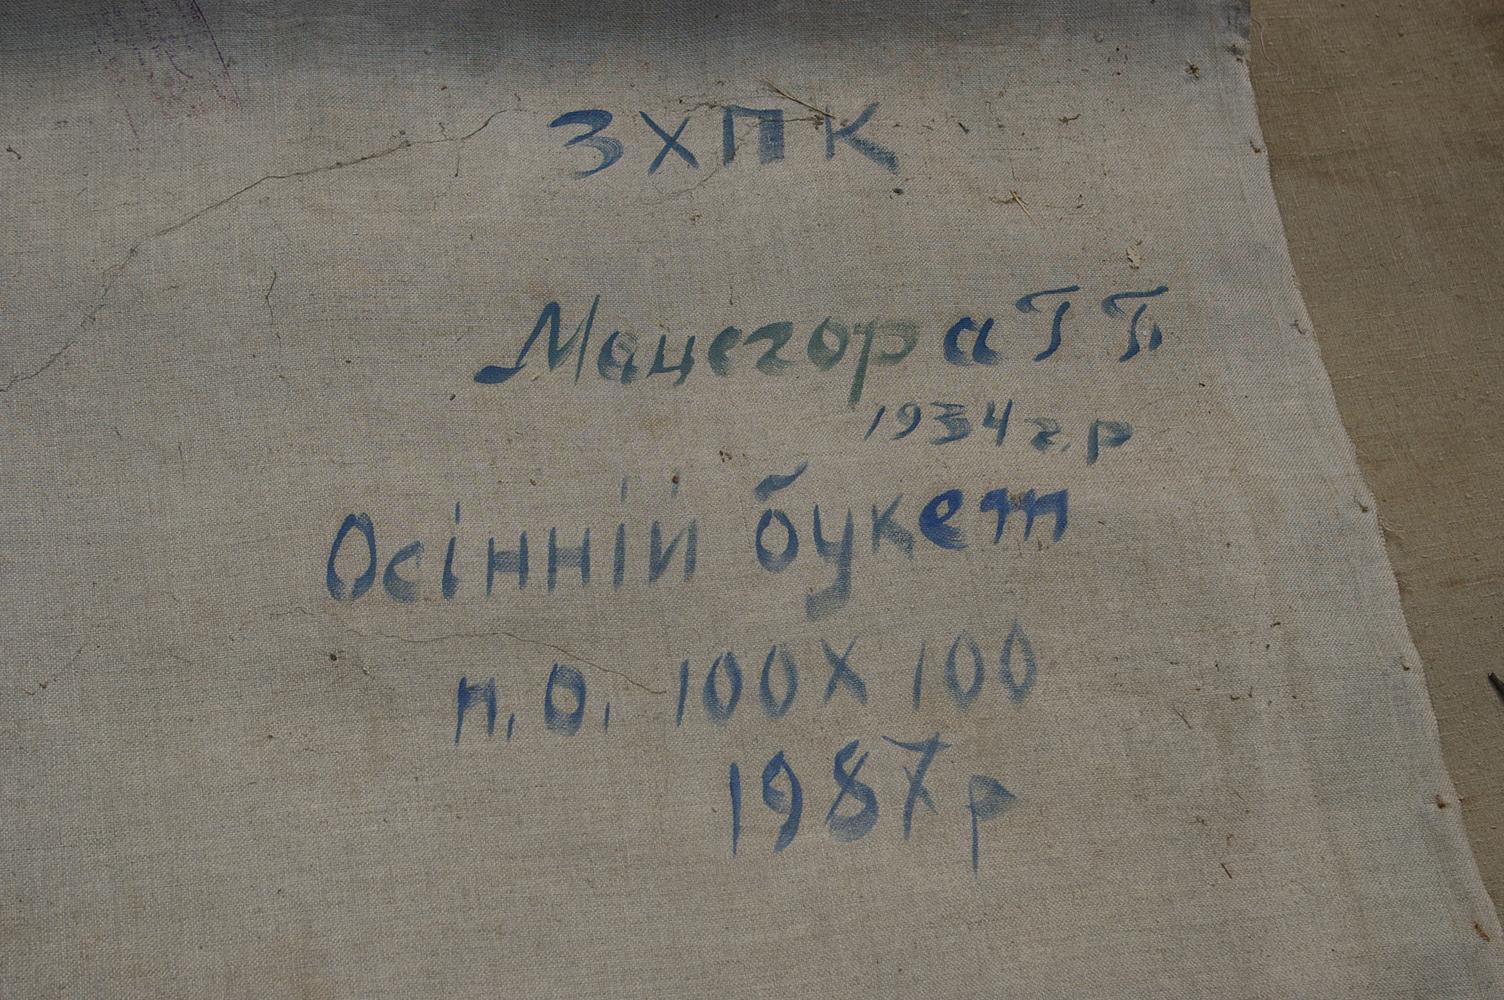 ЗХПК
Мацегора Г Г.
1934 г.р
Осінній букет
п.о. 100х100
1987р